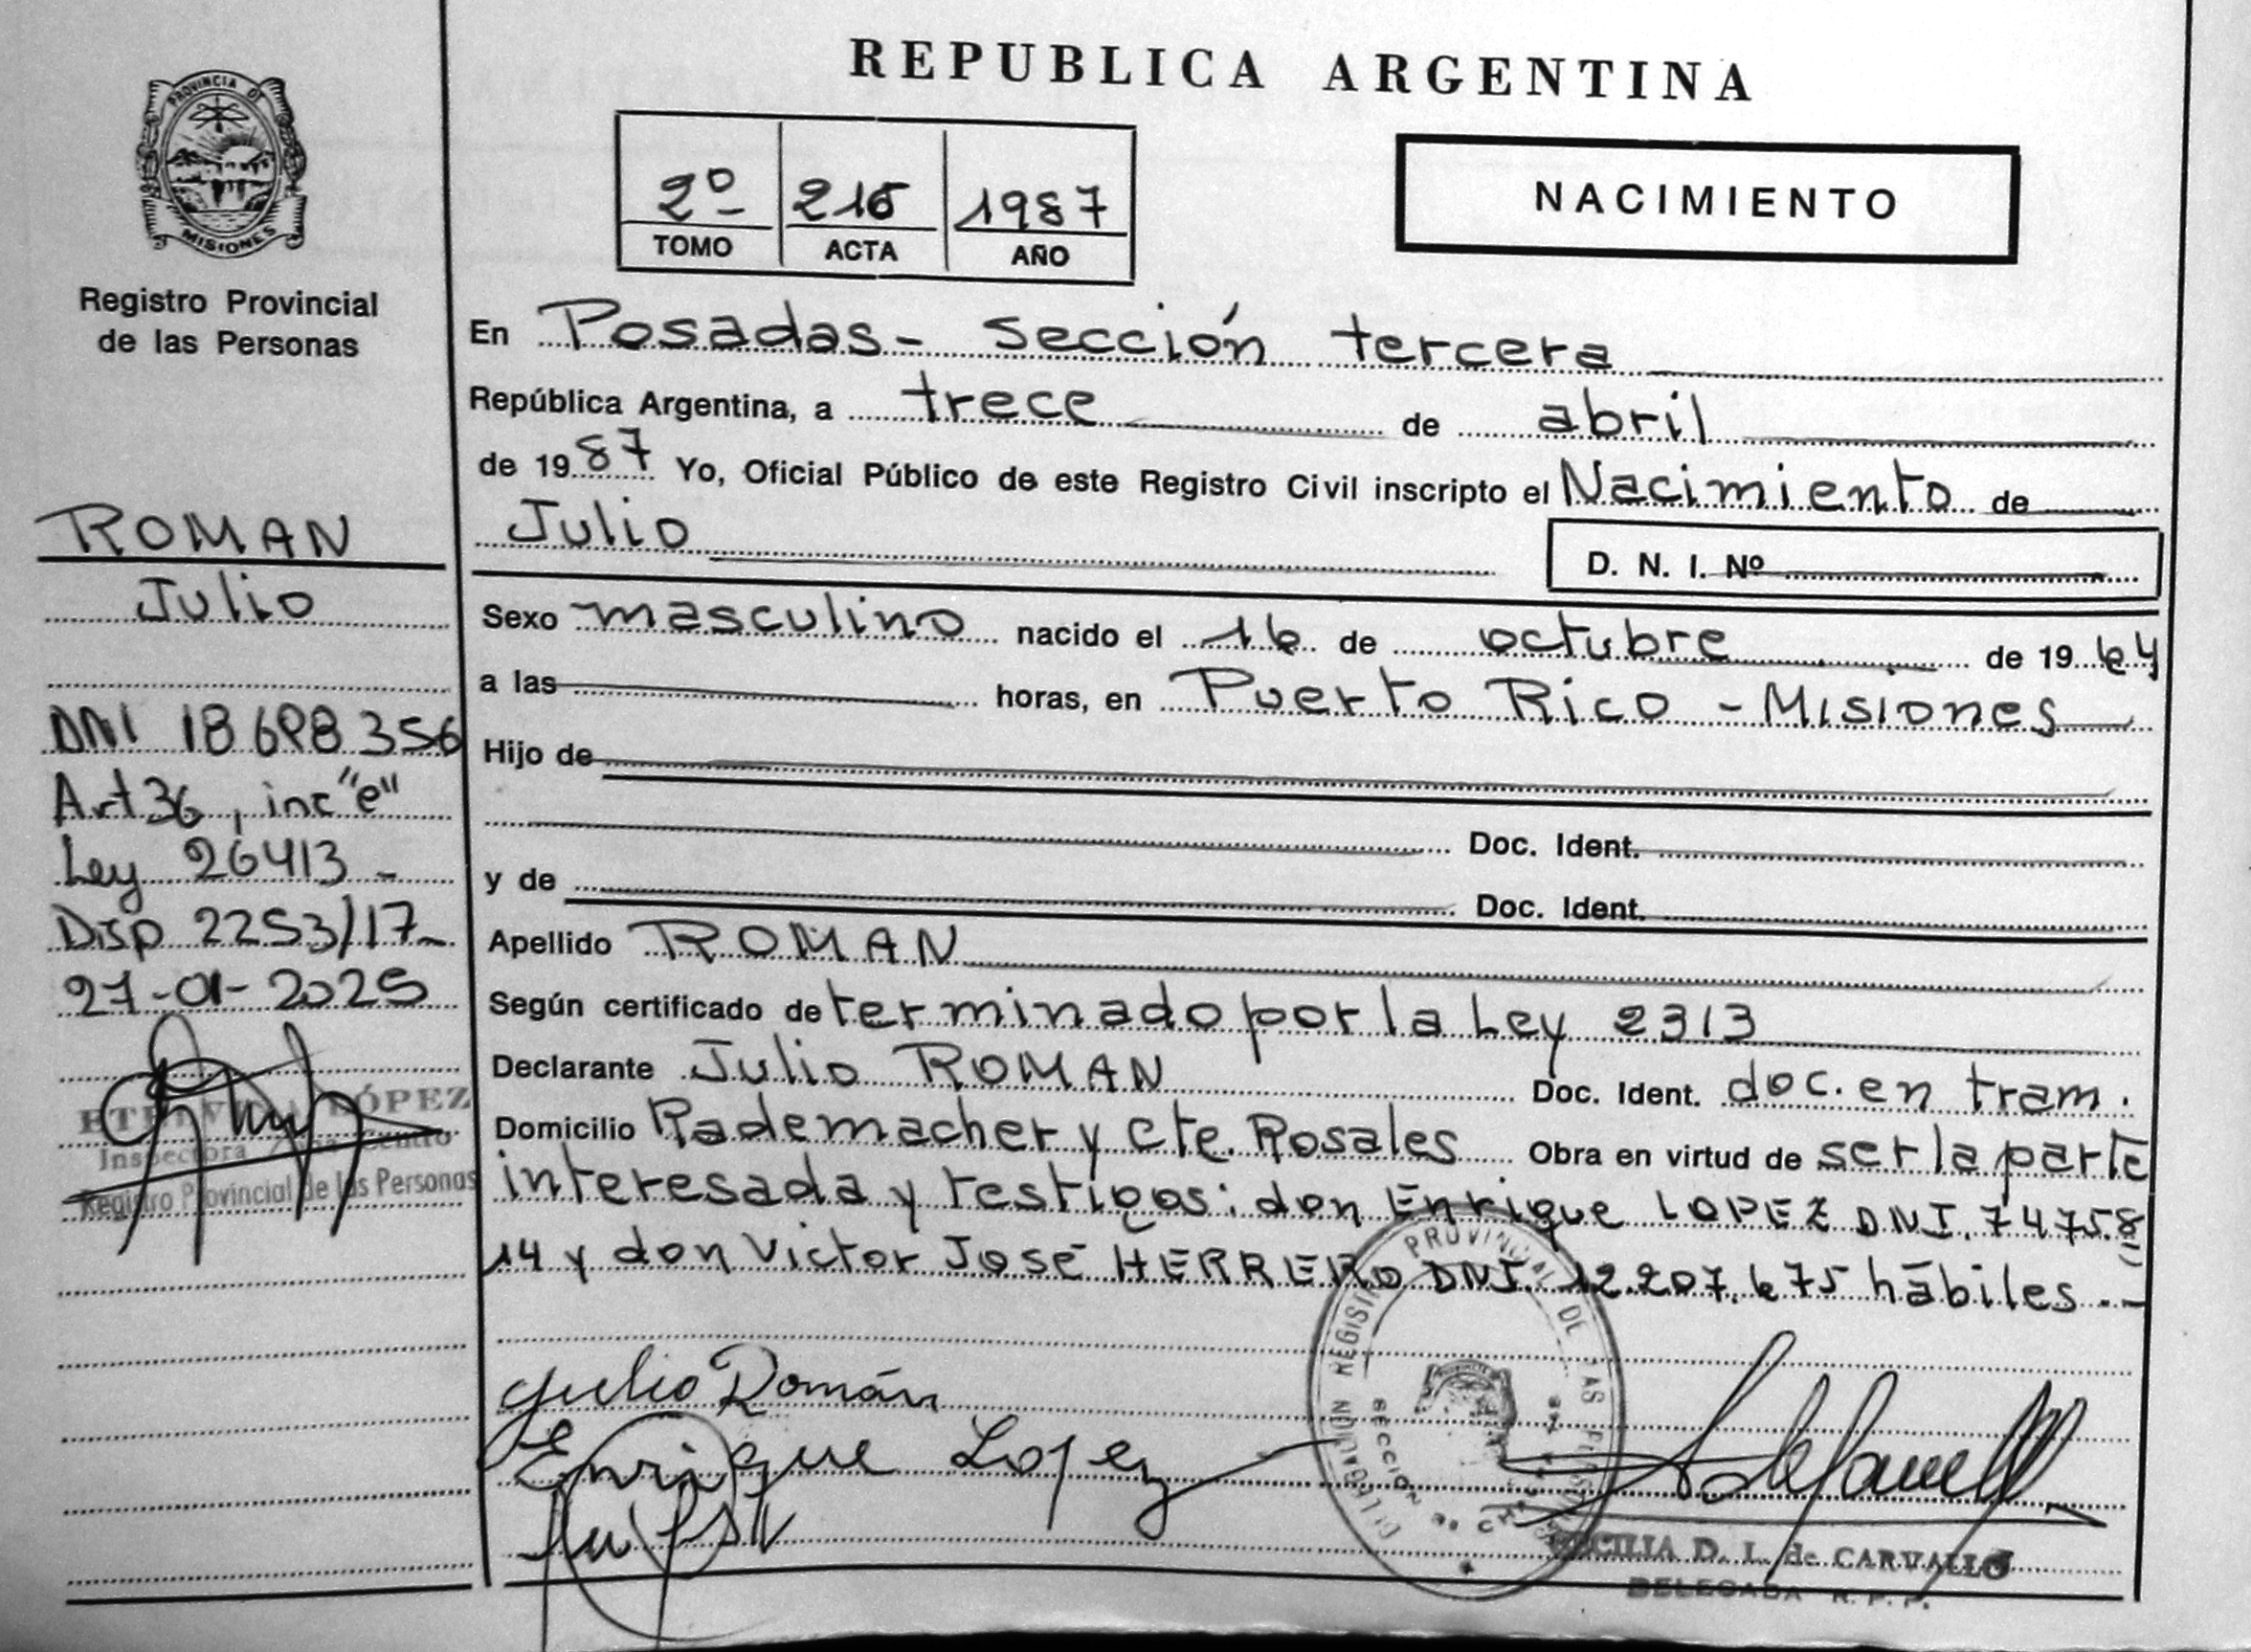 PROVINCIA DE
MISIONES
Registro Provincial
de las Personas
ROMAN
Julio
DNI 18698356
Art 36, inc "e"
Ley 26413 -
Disp 2253/17-
27-01-2025
LÓPEZ
Inspectora Centro
Registro Provincial de las Personas
REPUBLICA ARGENTINA
2º 216 1987
TOMO ACTA AÑO
NACIMIENTO
En Posadas - Sección tercera
República Argentina, a trece de abril
de 1987 Yo, Oficial Público de este Registro Civil inscripto el Nacimiento de
Julio D. N. I. Nº
Sexo masculino nacido el 16 de octubre de 1964
a las horas, en Puerto Rico - Misiones
Hijo de
Doc. Ident.
y de Doc. Ident.
Apellido ROMAN
Según certificado determinado por la Ley 2313
Declarante Julio ROMAN Doc. Ident. doc. en tram.
Domicilio Rademacher y Cte. Rosales Obra en virtud de ser la parte
interesada y testigos: don Enrique LOPEZ DNI. 7475.8
14 y don Victor José HERRERO DNI. 12.207.675 hábiles.-
Julio Román
Enrique Lopez
REGISTRO PROVINCIAL DE LAS PERSONAS
DELEGACION
SECCION
CECILIA D. L. de CARVALLO
DELEGADA R. P. P.